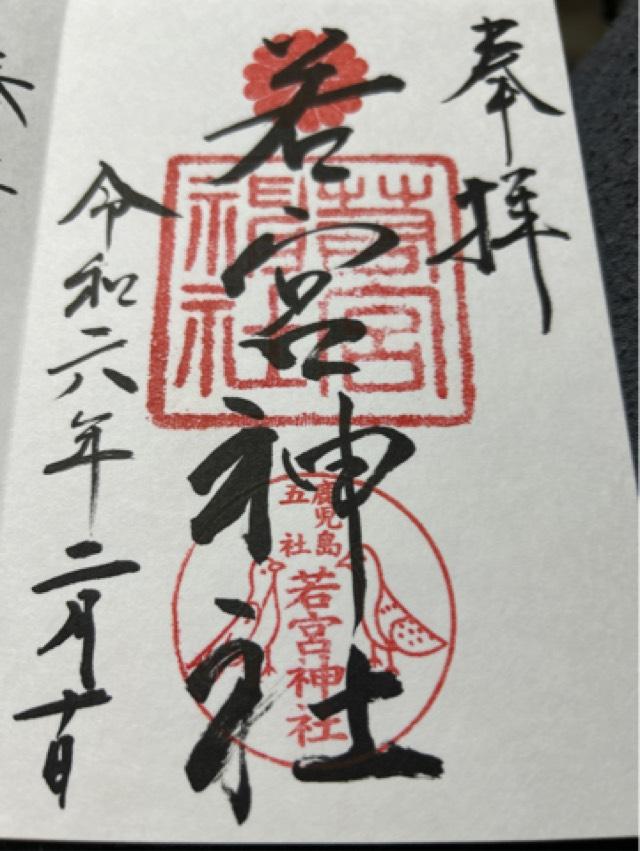 奉拝
若宮神社
若宮
神社
鹿児島
五社
若宮神社
令和六年二月十日